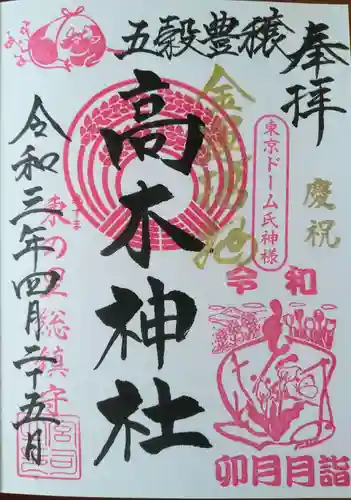 奉拝
五穀豊穣
慶祝
東京ドーム氏神様
高木神社
総鎮守
令和三年四月二十五日
令和
卯月月詣